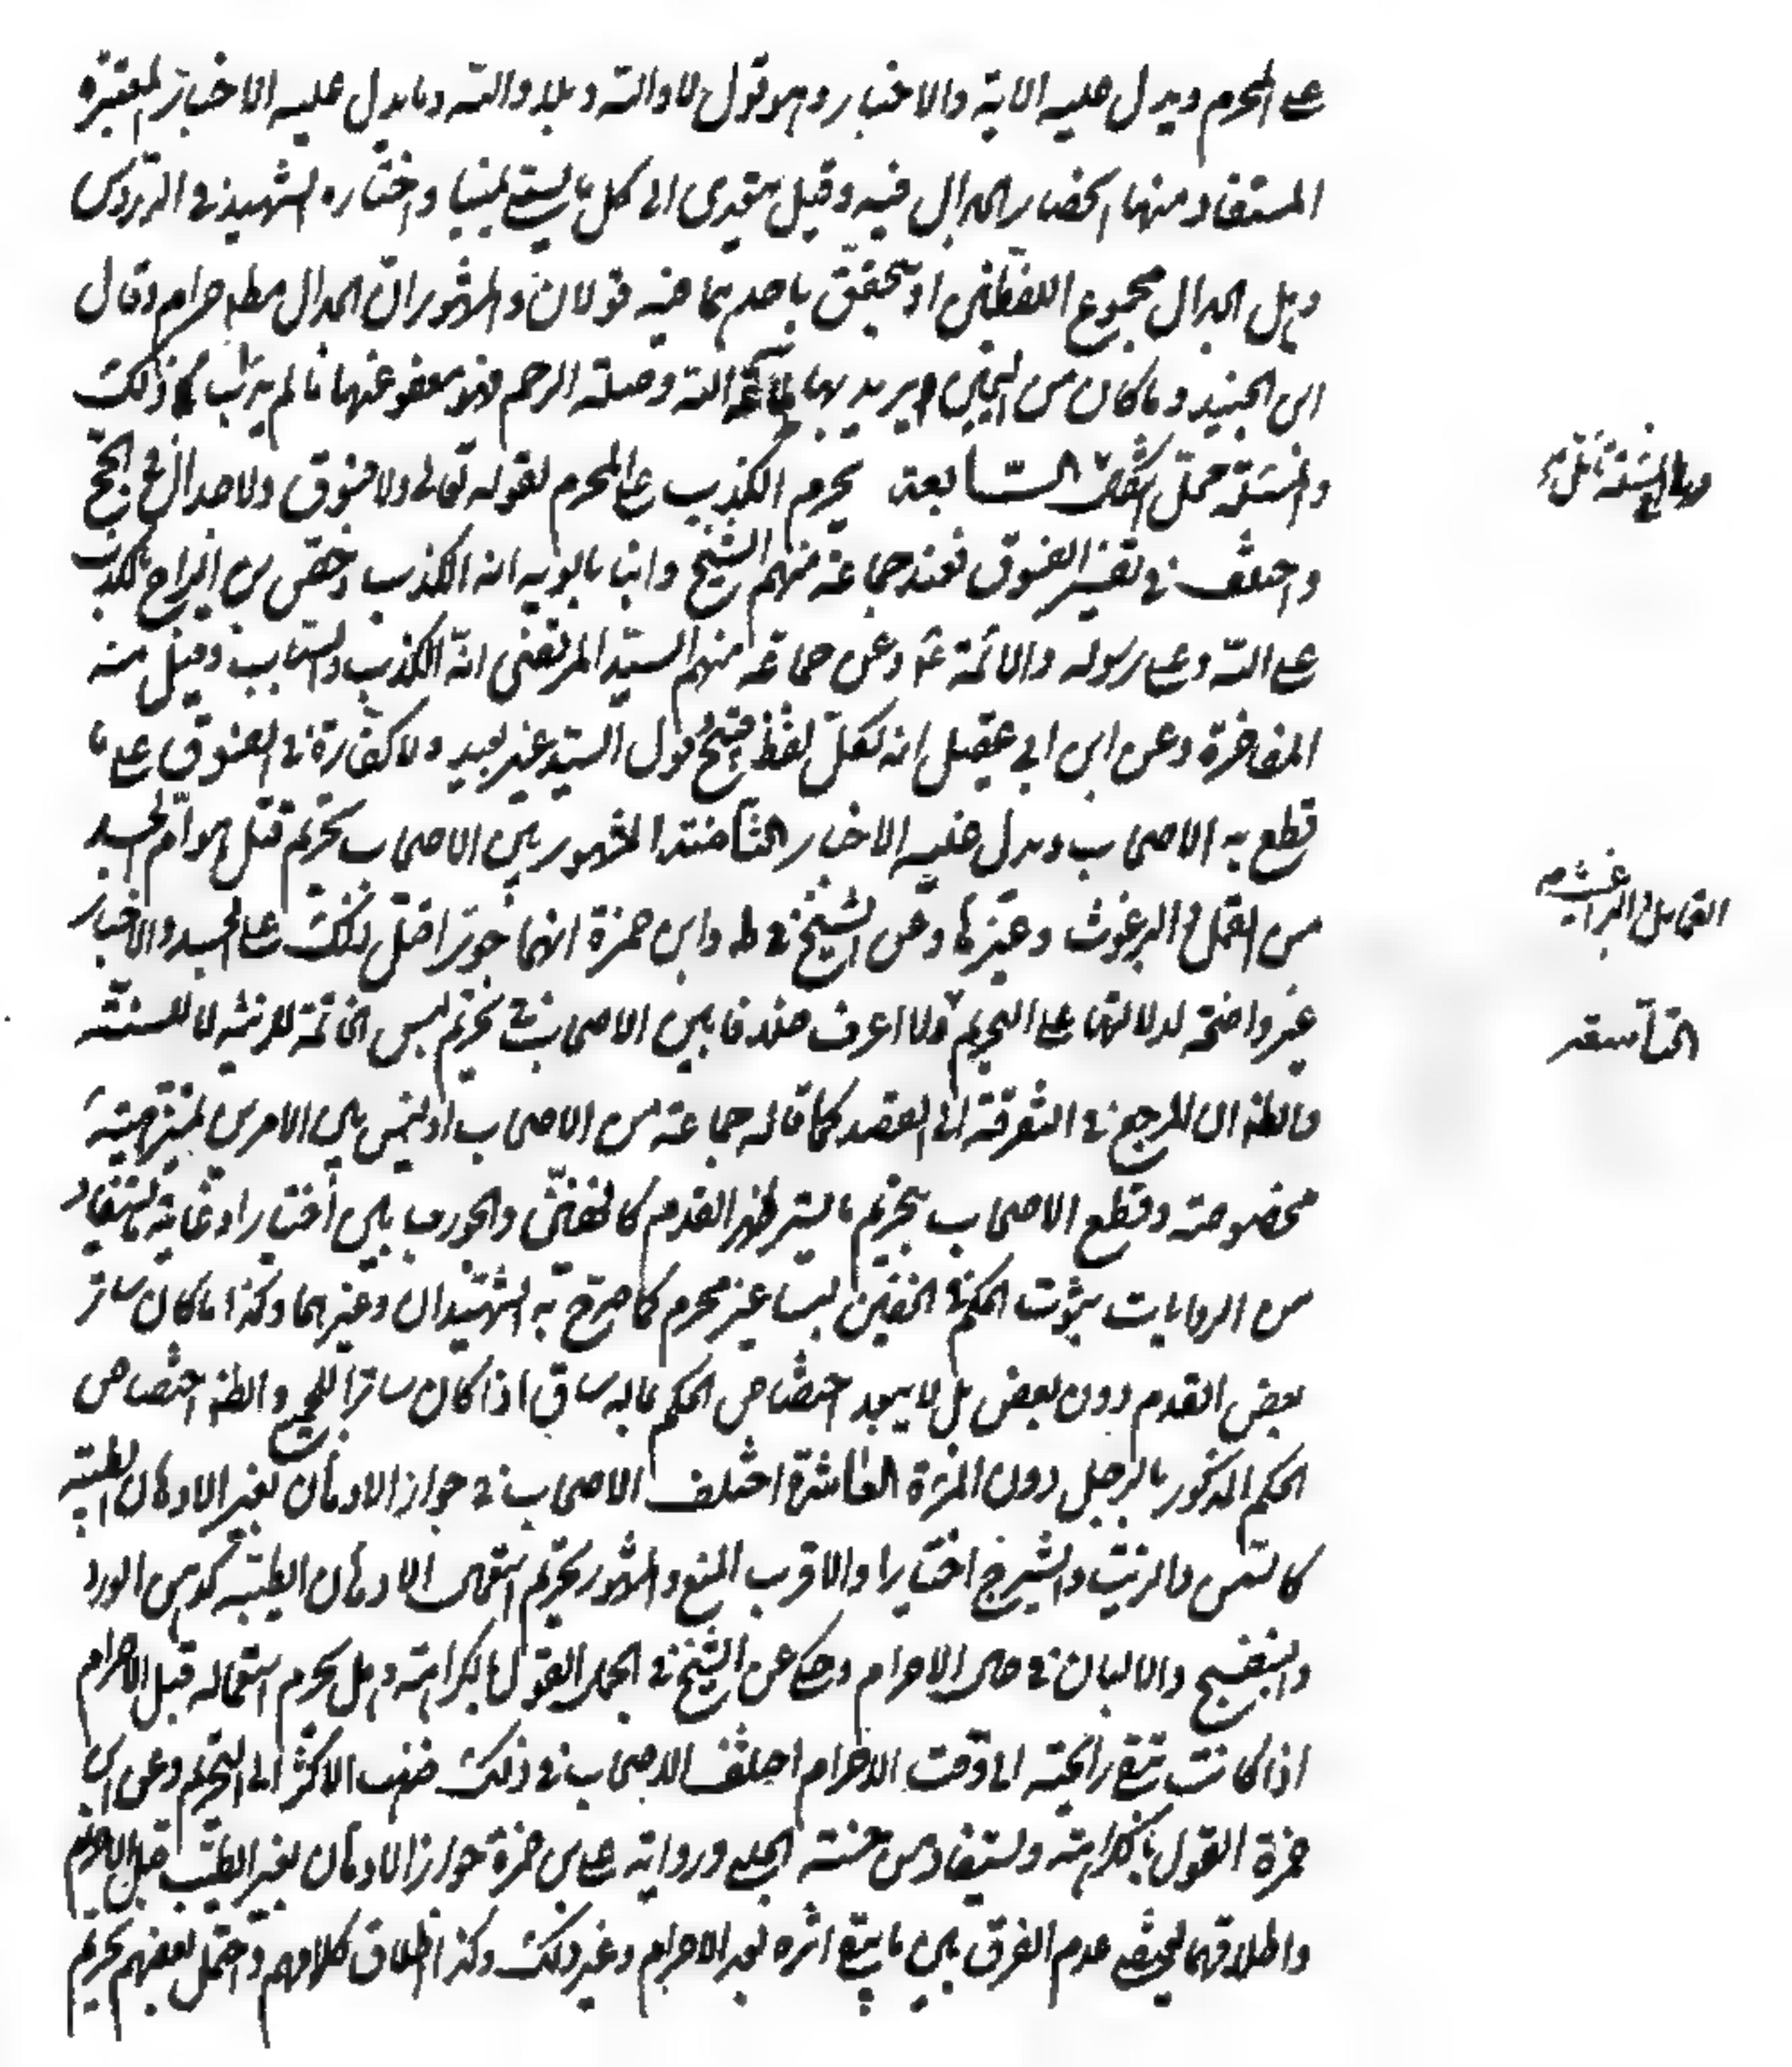 على المحرم ويدل عليه الاية والاخبار وهو قول لا والله وبلى والله وما يدل عليه الاخبار المعتبرة
المستفاد منها انحصار الجدال فيه وقيل يتعدى الى كل ما يسمى يمينا واختاره الشهيد في الدروس
وهل الجدال مجموع اللفظين او يتحقق باحدهما فيه قولان والمشهور ان الجدال مطلقا حرام وقال
ابن الجنيد وما كان من اليمين يريد بها طاعة الله وصلة الرحم فهو معفو عنها ما لم يدأب في ذلك
والمسئلة محل اشكال السابعة يحرم الكذب على المحرم لقوله تعالى ولا فسوق ولا جدال في الحج
واختلف في تفسير الفسوق فعند جماعة منهم الشيخ وابنا بابويه انه الكذب وخص ابن البراج بالكذب
على الله وعلى رسوله والائمة ع وعن جماعة منهم السيد المرتضى انه الكذب والسباب وقيل منه
المفاخرة وعن ابن ابي عقيل انه كل لفظ قبيح قول السيد غير بعيد ولا كفارة في الفسوق على ما
قطع به الاصحاب ويدل عليه الاخبار الثامنة المشهور بين الاصحاب تحريم قتل هوام الجسد
من القمل والبرغوث وغيرها وعن الشيخ في ط وابن حمزة انهما جوزا قتل ذلك على الجسد والاخبار
غير واضحة لدلالتها على التحريم ولا اعرف خلافا بين الاصحاب في تحريم لبس الخاتمة للزينة لا للسنة
والظ ان المرجع في التفرقة الى القصد كما قاله جماعة من الاصحاب اذ ليس بين الامرين
مخصوصة وقطع الاصحاب بتحريم ما يستر ظهر القدم كالخفين والجورب بين اختيارا وغاية ما يستفاد
من الروايات ثبوت الحكم في الخفين لبسا غير محرم كما صرح به الشهيدان وغيرهما وكذا ما كان ساتر
بعض القدم دون بعض بل لا يبعد اختصاص الحكم بماله ساق اذا كان ساترا للجميع والظ اختصاص
الحكم المذكور بالرجل دون المرءة العاشرة اختلف الاصحاب في جواز الادهان بغير الادهان الطيبة
كالسمن والزيت والشيرج اختيارا والاقرب المنع والمشهور تحريم استعمال الادهان الطيبة كدهن الورد
والبنفسج والالبان في حال الاحرام وحكى عن الشيخ في الجمل القول بالكراهة وهل يحرم استعماله قبل الاحرام
اذا كانت تبقى رائحته الى وقت الاحرام اختلف الاصحاب في ذلك فذهب الاكثر الى التحريم وعن ابن
حمزة القول بالكراهة ويستفاد من حسنة الحلبي ورواية على بن حمزة جواز الادهان بغير الطيب قبل الاحرام
واطلاقهما يقتضى عدم الفرق بين ما يبقى اثره بعد الاحرام وغير ذلك وكذا اطلاق كلامهم واحتمل بعضهم تحريم
القمل والبراغيث
التاسعة